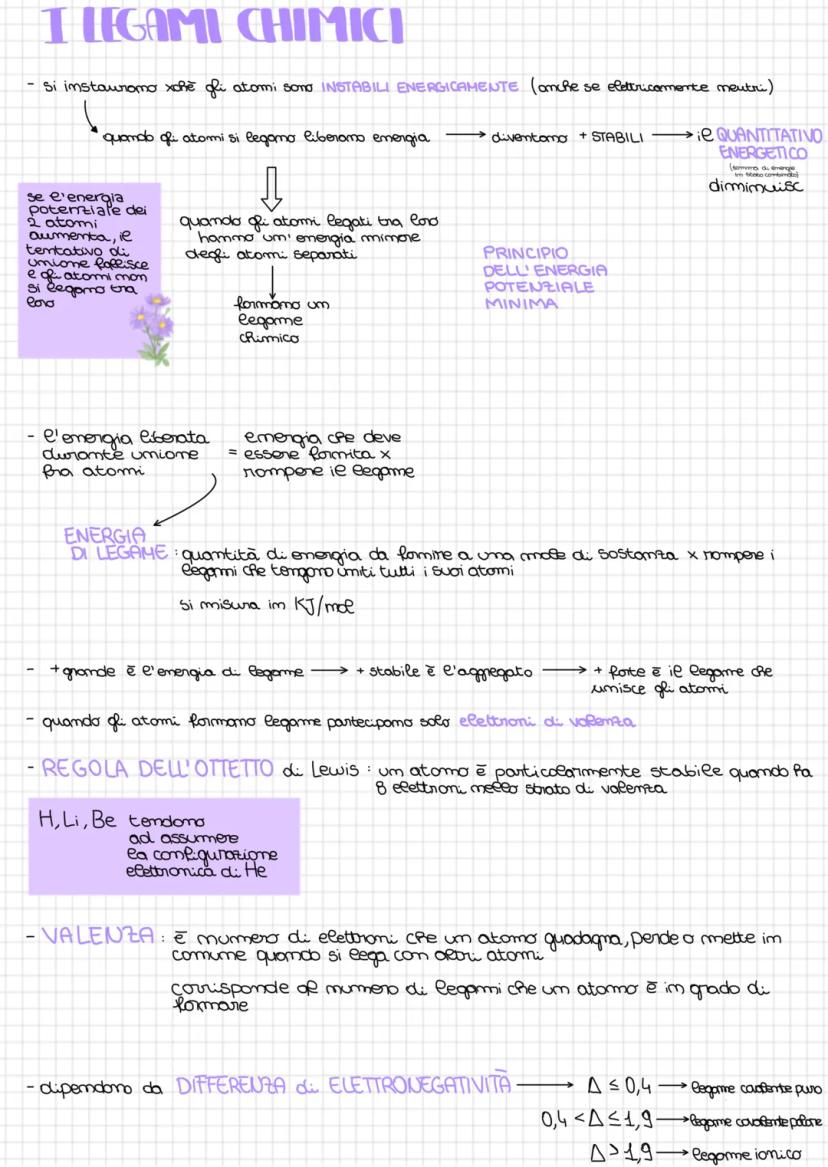 I LEGAMI CHIMICI
- si instaurano xchè gli atomi sono INSTABILI ENERGICAMENTE (anche se elettricamente neutri)
quando gli atomi si legano liberano energia → diventano + STABILI → il QUANTITATIVO
ENERGETICO
(somma di energie
in stato combinato)
diminuisc
se l'energia
potenziale dei
2 atomi
aumenta, il
tentativo di
unione fallisce
e gli atomi non
si legano tra
loro
quando gli atomi legati tra loro
hanno un'energia minore
degli atomi separati
formano un
legame
chimico
PRINCIPIO
DELL'ENERGIA
POTENZIALE
MINIMA
- l'energia liberata
durante unione
fra atomi
= energia che deve
essere fornita x
rompere il legame
ENERGIA
DI LEGAME : quantità di energia da fornire a una mole di sostanza x rompere i
legami che tengono uniti tutti i suoi atomi
si misura in KJ/mol
- + grande è l'energia di legame → + stabile è l'aggregato → + forte è il legame che
unisce gli atomi
- quando gli atomi formano legame partecipano solo elettroni di valenza
- REGOLA DELL'OTTETTO di Lewis : un atomo è particolarmente stabile quando ha
8 elettroni nello strato di valenza
H, Li, Be tendono
ad assumere
la configurazione
elettronica di He
- VALENZA : è numero di elettroni che un atomo guadagna, perde o mette in
comune quando si lega con altri atomi
corrisponde al numero di legami che un atomo è in grado di
formare
- dipendono da DIFFERENZA di ELETTRONEGATIVITÀ → Δ ≤ 0,4 → legame covalente puro
0,4 < Δ ≤ 1,9 → legame covalente polare
Δ > 1,9 → legame ionico